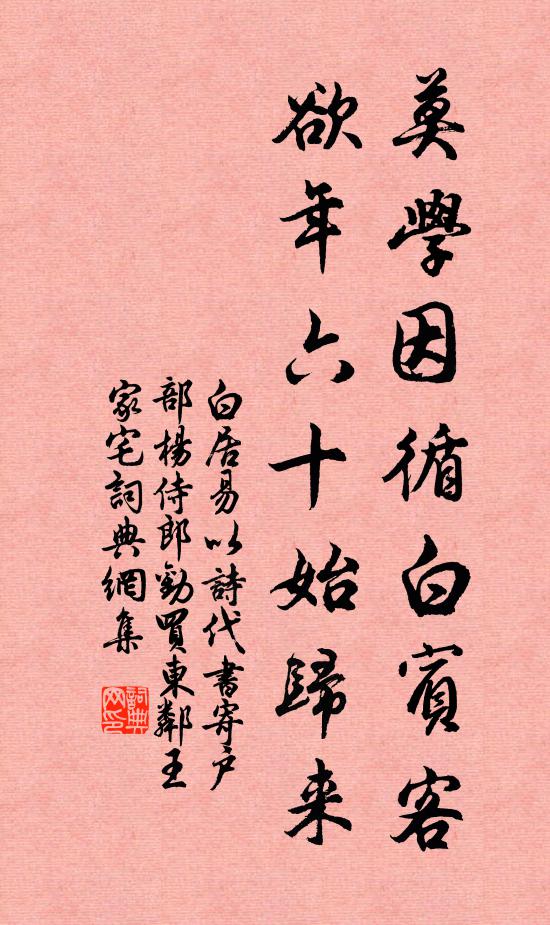 莫學因循白賓客
欲年六十始歸来
白居易以詩代書寄户
部楊侍郎勸買東鄰王
家宅詞典網集
詞典网印